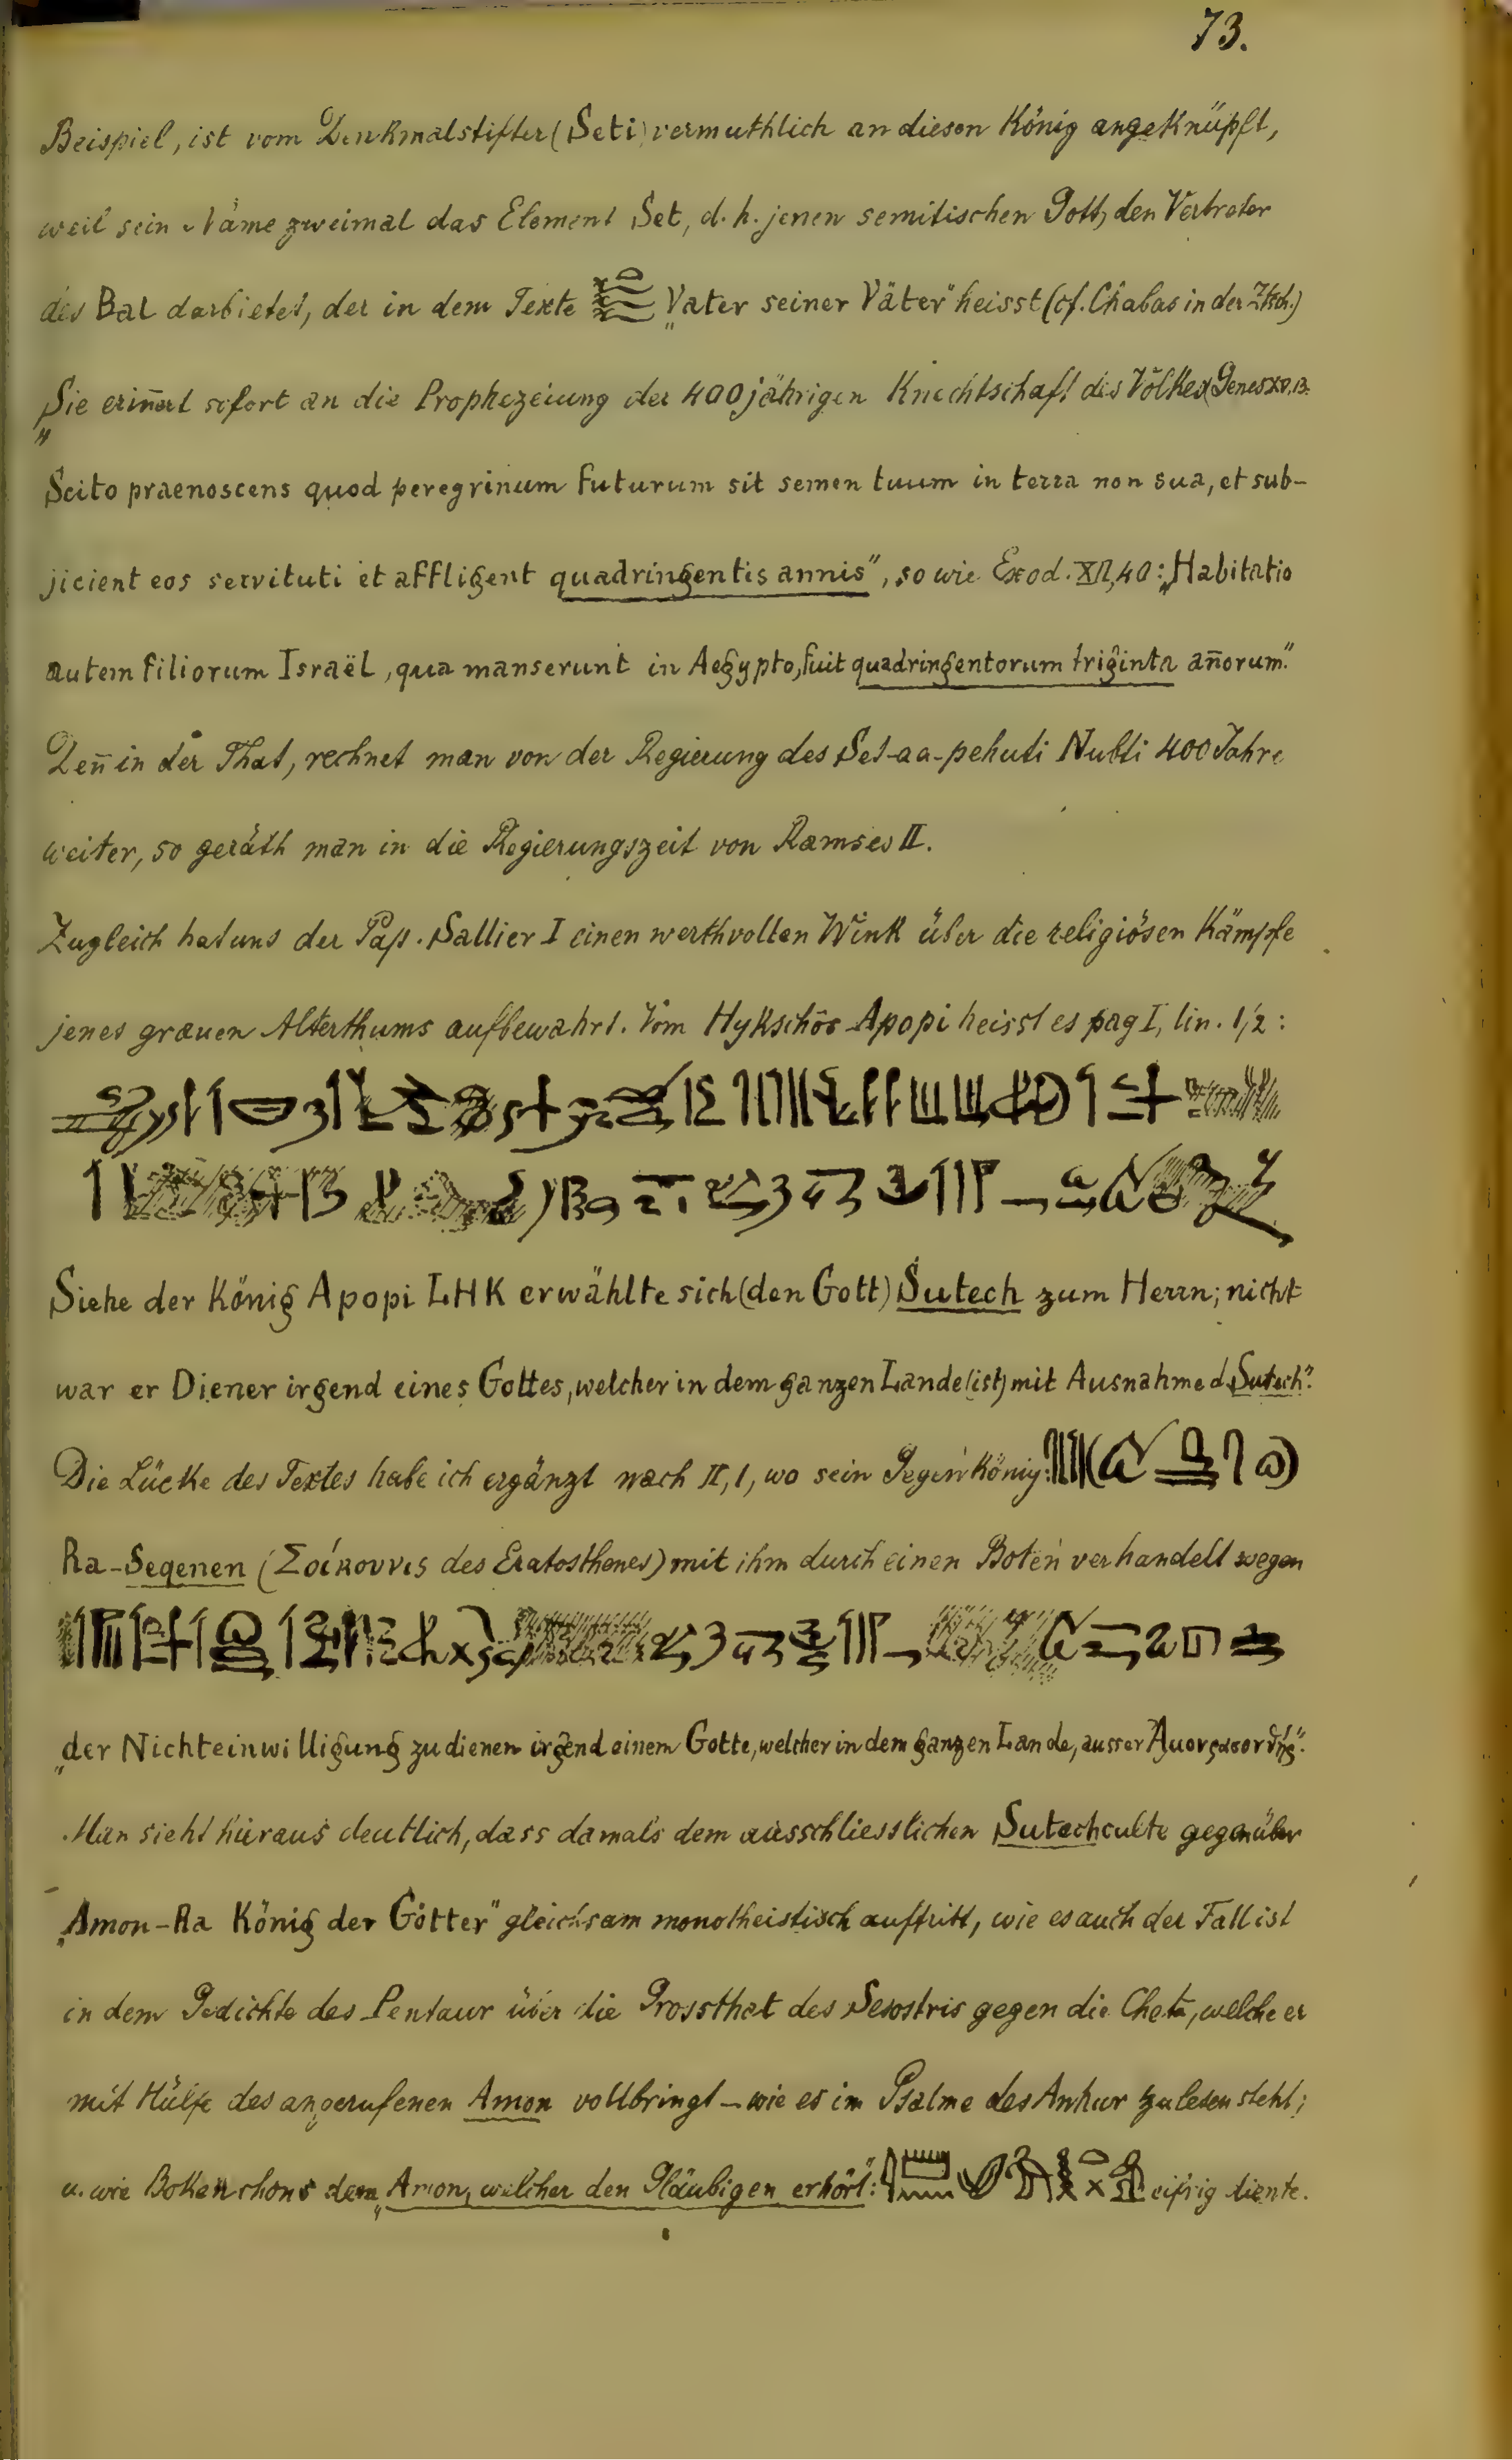 73.
Beispiel, ist vom Denkmalstifter (Seti) vermuthlich an diesen König angeknüpft,
weil sein Name zweimal das Element Set, d. h. jenen semitischen Gott, den Vertreter
des Bal darbietet, der in dem Texte „Vater seiner Väter" heisst (cf. Chabas in der Ztsch.)
Sie erin̄ert sofort an die Prophezeiung der 400jährigen Knechtschaft des Volkes (Genes XV, 13.
„Scito praenoscens quod peregrinum futurum sit semen tuum in terra non sua, et sub-
jicient eos servituti et affligent quadringentis annis", so wie Exod. XII, 40: „Habitatio
autem filiorum Israël, qua manserunt in Aegypto, fuit quadringentorum triginta an̄orum."
Den̄ in der That, rechnet man von der Regierung des Set-aa-pehuti Nubti 400 Jahre
weiter, so geräth man in die Regierungszeit von Ramses II.
Zugleich hat uns der Pap. Sallier I einen werthvollen Wink über die religiösen Kämpfe
jenes grauen Alterthums aufbewahrt. Vom Hykschôs Apopi heisst es pag I, lin. 1/2:
Siehe der König Apopi LHK erwählte sich (den Gott) Sutech zum Herrn; nicht
war er Diener irgend eines Gottes, welcher in dem ganzen Lande (ist) mit Ausnahme d. Sutech".
Die Lücke des Textes habe ich ergänzt nach II, 1, wo sein Gegenkönig:
Ra-Seqenen (Σοίκουνις des Eratosthenes) mit ihm durch einen Boten verhandelt wegen
„der Nichteinwilligung zu dienen irgend einem Gotte, welcher in dem ganzen Lande, ausser
Man sieht hieraus deutlich, dass damals dem ausschliesslichen Sutechculte gegenüber
„Amon-Ra König der Götter" gleichsam monotheistisch auftritt, wie es auch der Fall ist
in dem Gedichte des Pentaur über die Grossthat des Sesostris gegen die Cheta, welche er
mit Hülfe des angerufenen Amon vollbringt – wie es im Psalme des Anhur zu lesen steht;
u. wie Bokenchons dem „Amon, welcher den Gläubigen erhört": eifrig diente.